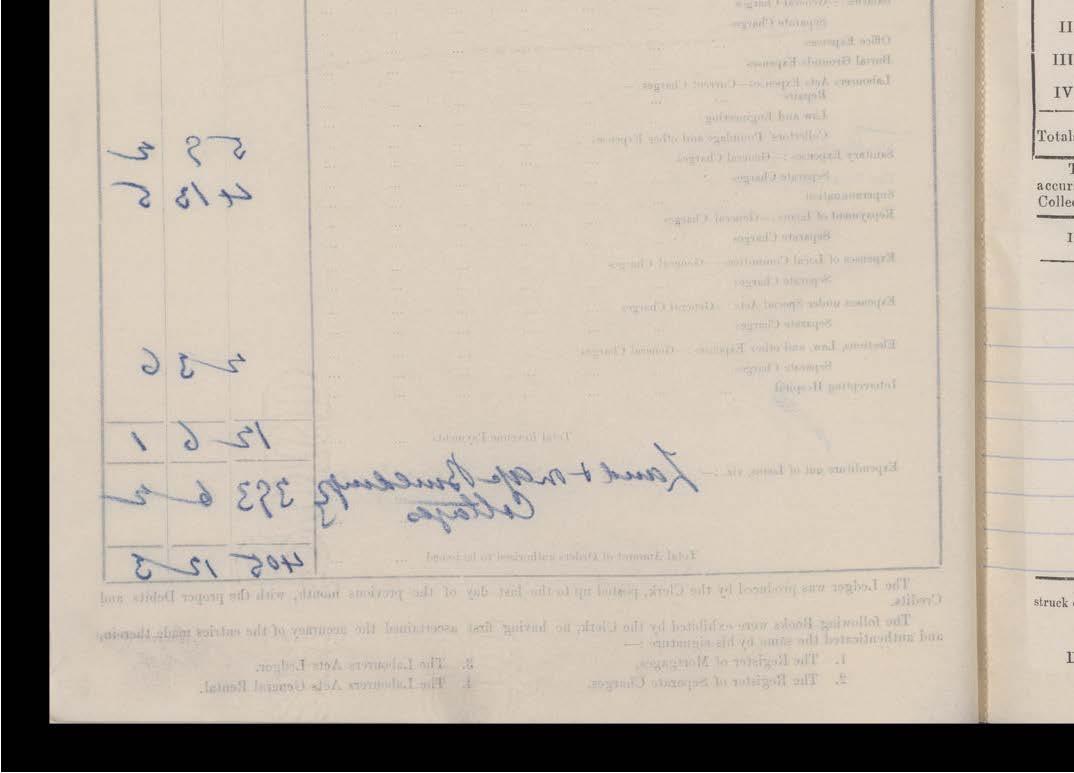 Salaries:—General Charges
Separate Charges
Office Expenses
Burial Grounds Expenses
Labourers Acts Expenses—Current Charges
Repairs
Law and Engineering
Collectors' Poundage and other Expenses
5 9 2
Sanitary Expenses:—General Charges
Separate Charges
4 13 5
Superannuation
Repayment of Loans:—General Charges
Separate Charges
Expenses of Local Committee:—General Charges
Separate Charges
Expenses under Special Acts:—General Charges
Separate Charges
Elections, Law, and other Expenses:—General Charges
Separate Charges 2 3 6
Intercepting Hospital
Total Revenue Payments 12 6 1
Expenditure out of Loans, viz.:— Land &
Cottages 393 6 2
Total Amount of Orders authorised to be issued 405 12 3
The Ledger was produced by the Clerk, posted up to the last day of the previous month, with the proper Debits and
Credits.
The following Books were exhibited by the Clerk, he having first ascertained the accuracy of the entries made therein,
and authenticated the same by his signature:—
1. The Register of Mortgages. 3. The Labourers Acts Ledger.
2. The Register of Separate Charges. 4. The Labourers Acts General Rental.
II
III
IV
Totals
T
accur
Colle
I
struck